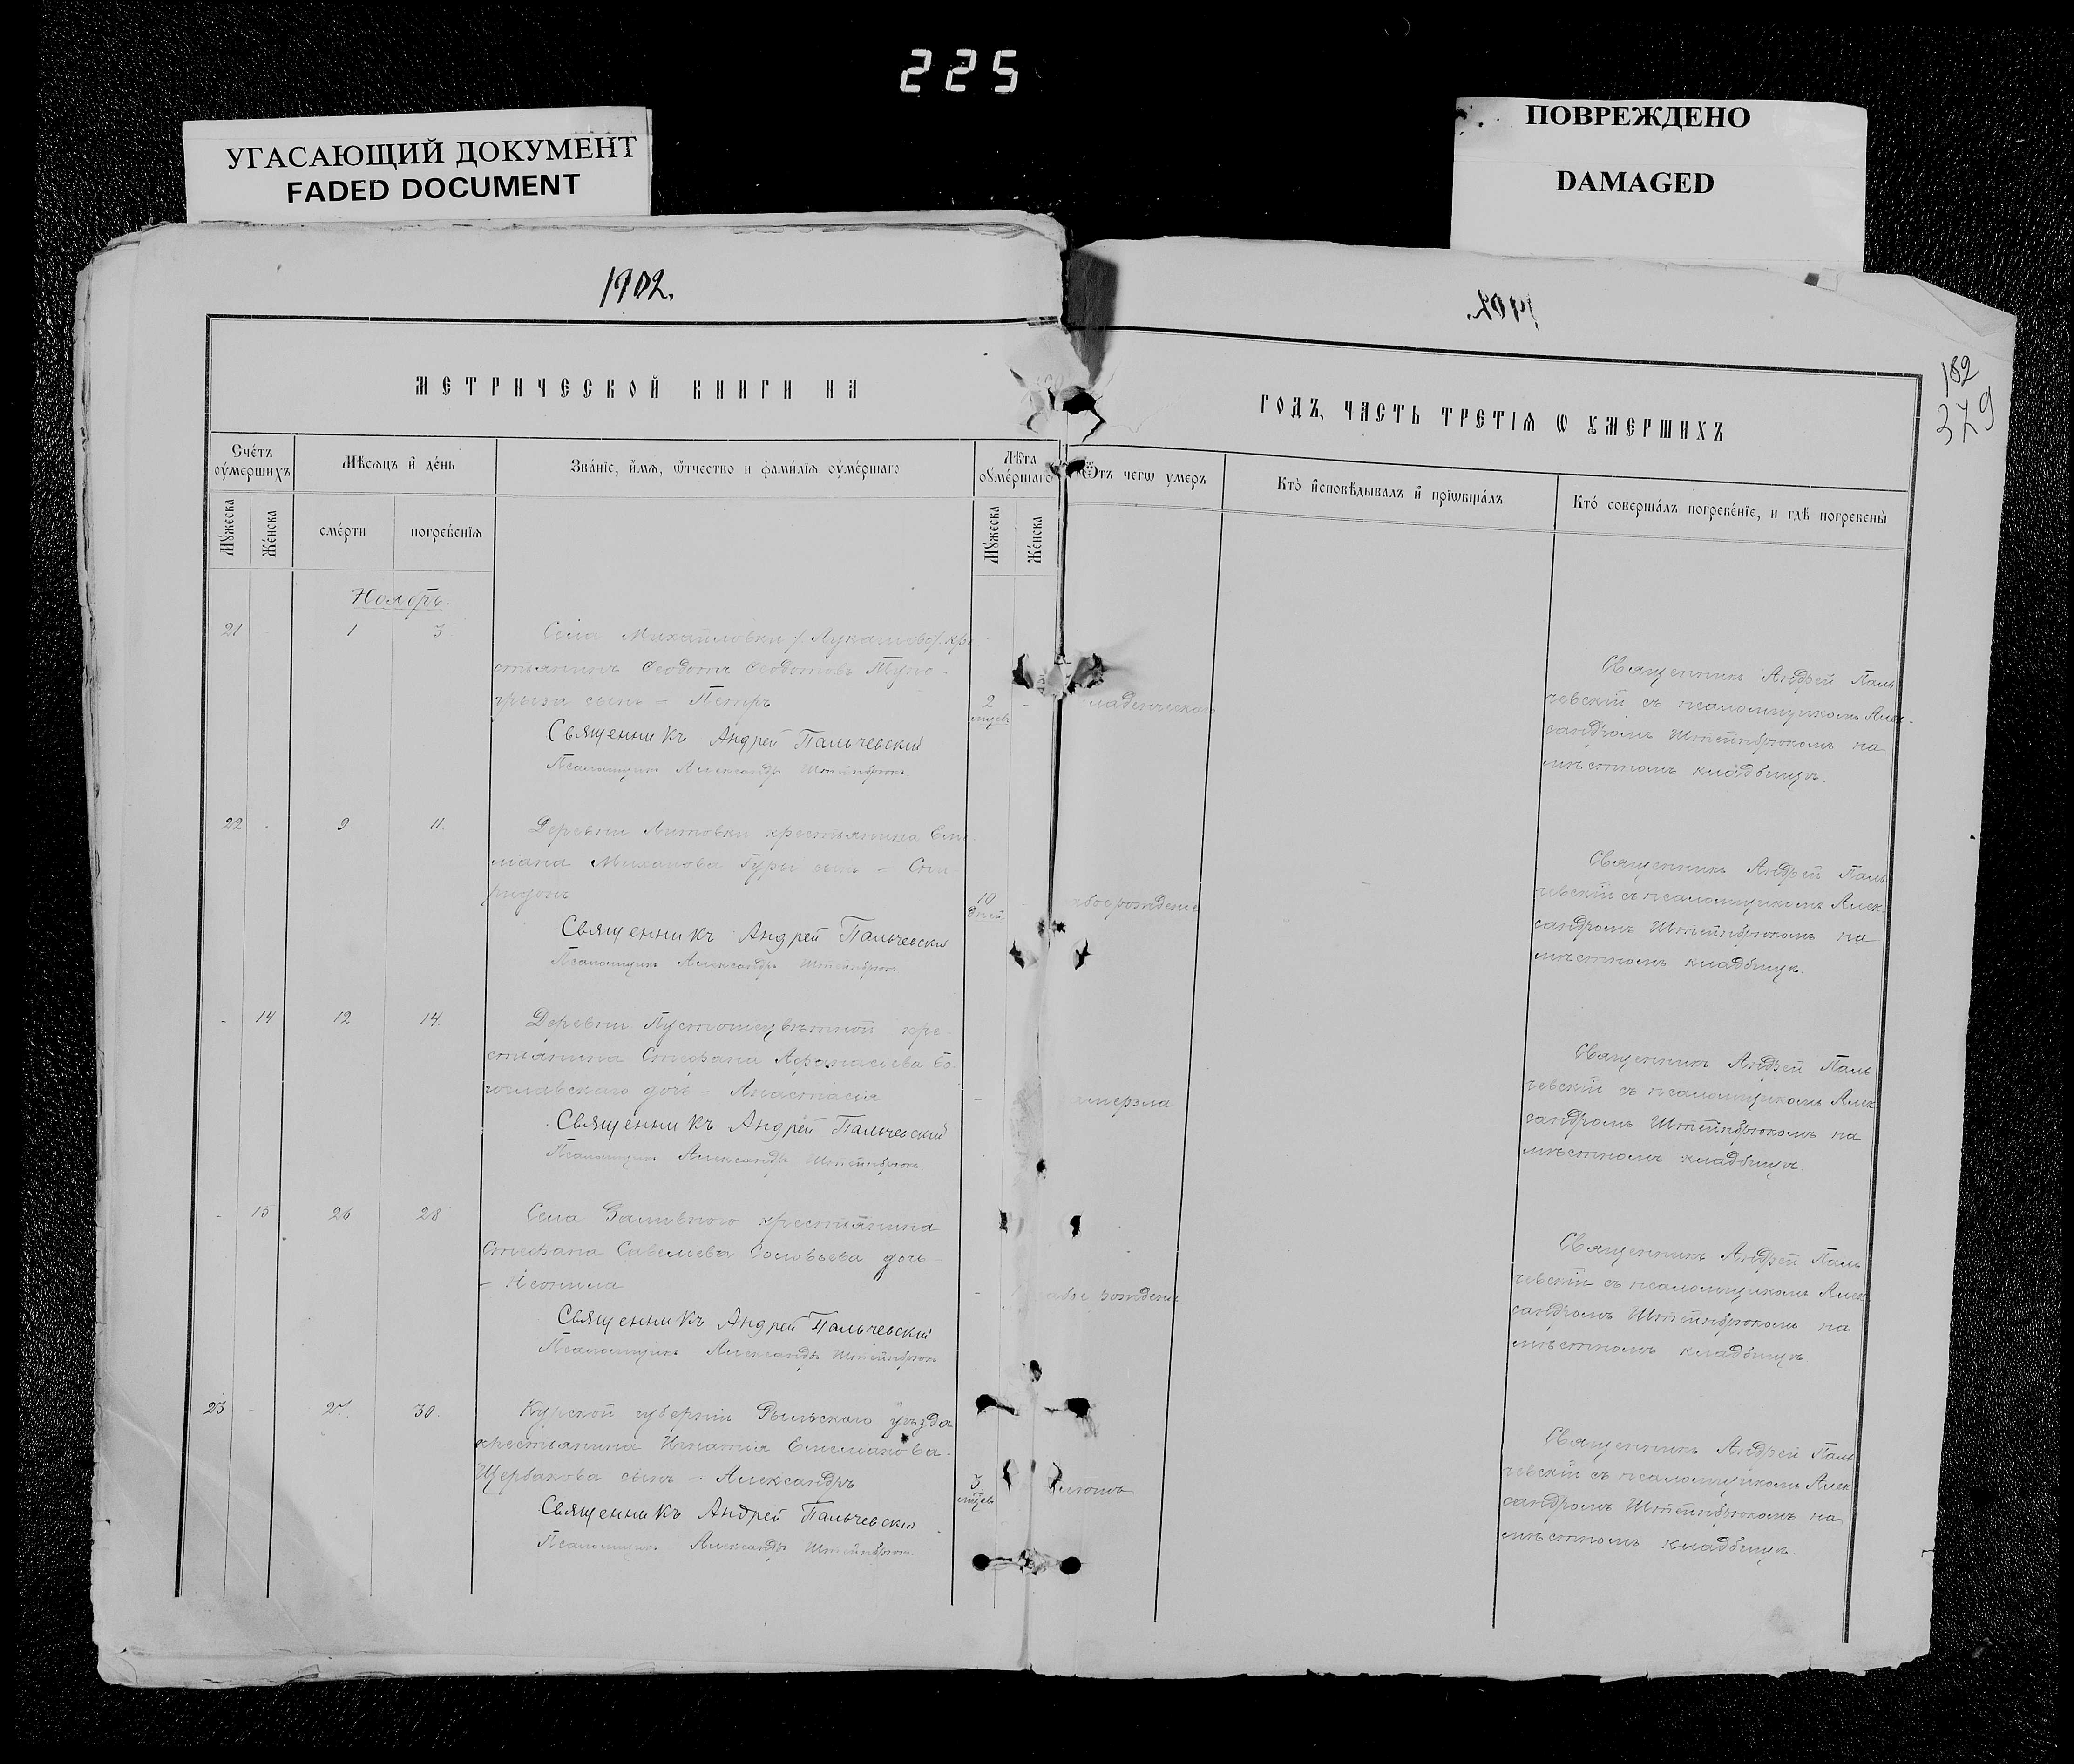 225
УГАСАЮЩИЙ ДОКУМЕНТ
FADED DOCUMENT
ПОВРЕЖДЕНО
DAMAGED
1902.
1902.
182
379
МЕТРИЧЕСКОЙ КНИГИ НА
ГОДЪ, ЧАСТЬ ТРЕТІѦ Ѡ ОУМЕРШИХЪ
Сче́тъ оу́мершихъ
Мѣсѧцъ и҆ де́нь
Зва́нїе, и҆́мѧ, ѻ҆́тчество и фами́лїѧ оу҆ме́ршагѡ
Лѣ́та оу҆ме́ршагѡ
Ѿ чегѡ̀ умеръ
Кто̀ и҆сповѣдывалъ и҆ прїѡбща́лъ
Кто́ соверша́лъ погребе́нїе, и гдѣ̀ погребены̀
Мꙋ́жеска
Же́нска
сме́рти
погребе́нїѧ
Мꙋ́жеска
Же́нска
Ноябрь.
21 - 1 3
Села Михайловки /Лукашово/ кре-
стьянина Феодота Феодотова
сынъ - Петръ
2 мцевъ -
Священникъ Андрей Пальчевскій
Псаломщикъ Александръ Штейнбрюкъ
Священникъ Андрей Паль
чевскій съ псаломщикомъ Алек-
сандромъ Штейнбрюкомъ на
мѣстномъ кладбищѣ.
22 - 9. 11.
Деревни Литовки крестьянина Еми-
ліана Михайлова Гуры сынъ - Спи-
ридонъ
10 дней - рожденіе
Священникъ Андрей Пальчевскій
Псаломщикъ Александръ Штейнбрюкъ
Священникъ Андрей Паль
чевскій съ псаломщикомъ Алек-
сандромъ Штейнбрюкомъ на
мѣстномъ кладбищѣ.
- 14 12 14
Деревни кре-
стьянина Стефана Афанасіева Бо-
гославскаго дочь - Анастасія
-
Священникъ Андрей Пальчевскій
Псаломщикъ Александръ Штейнбрюкъ
Священникъ Андрей Паль
чевскій съ псаломщикомъ Алек
сандромъ Штейнбрюкомъ на
мѣстномъ кладбищѣ.
- 15 26 28
Села Заливного крестьянина
Стефана Савеліева Соловьева дочь -
- Неонила
- рожденіе
Священникъ Андрей Пальчевскій
Псаломщикъ Александръ Штейнбрюкъ
Священникъ Андрей Паль
чевскій съ псаломщикомъ Алек
сандромъ Штейнбрюкомъ на
мѣстномъ кладбищѣ.
23 - 27. 30.
Курской губерніи Рыльскаго уѣзда
крестьянина Игнатія Емеліанова
Щербакова сынъ - Александръ
3 мцевъ
Священникъ Андрей Пальчевскій
Псаломщикъ Александръ Штейнбрюкъ
Священникъ Андрей Паль
чевскій съ псаломщикомъ Алек
сандромъ Штейнбрюкомъ на
мѣстномъ кладбищѣ.